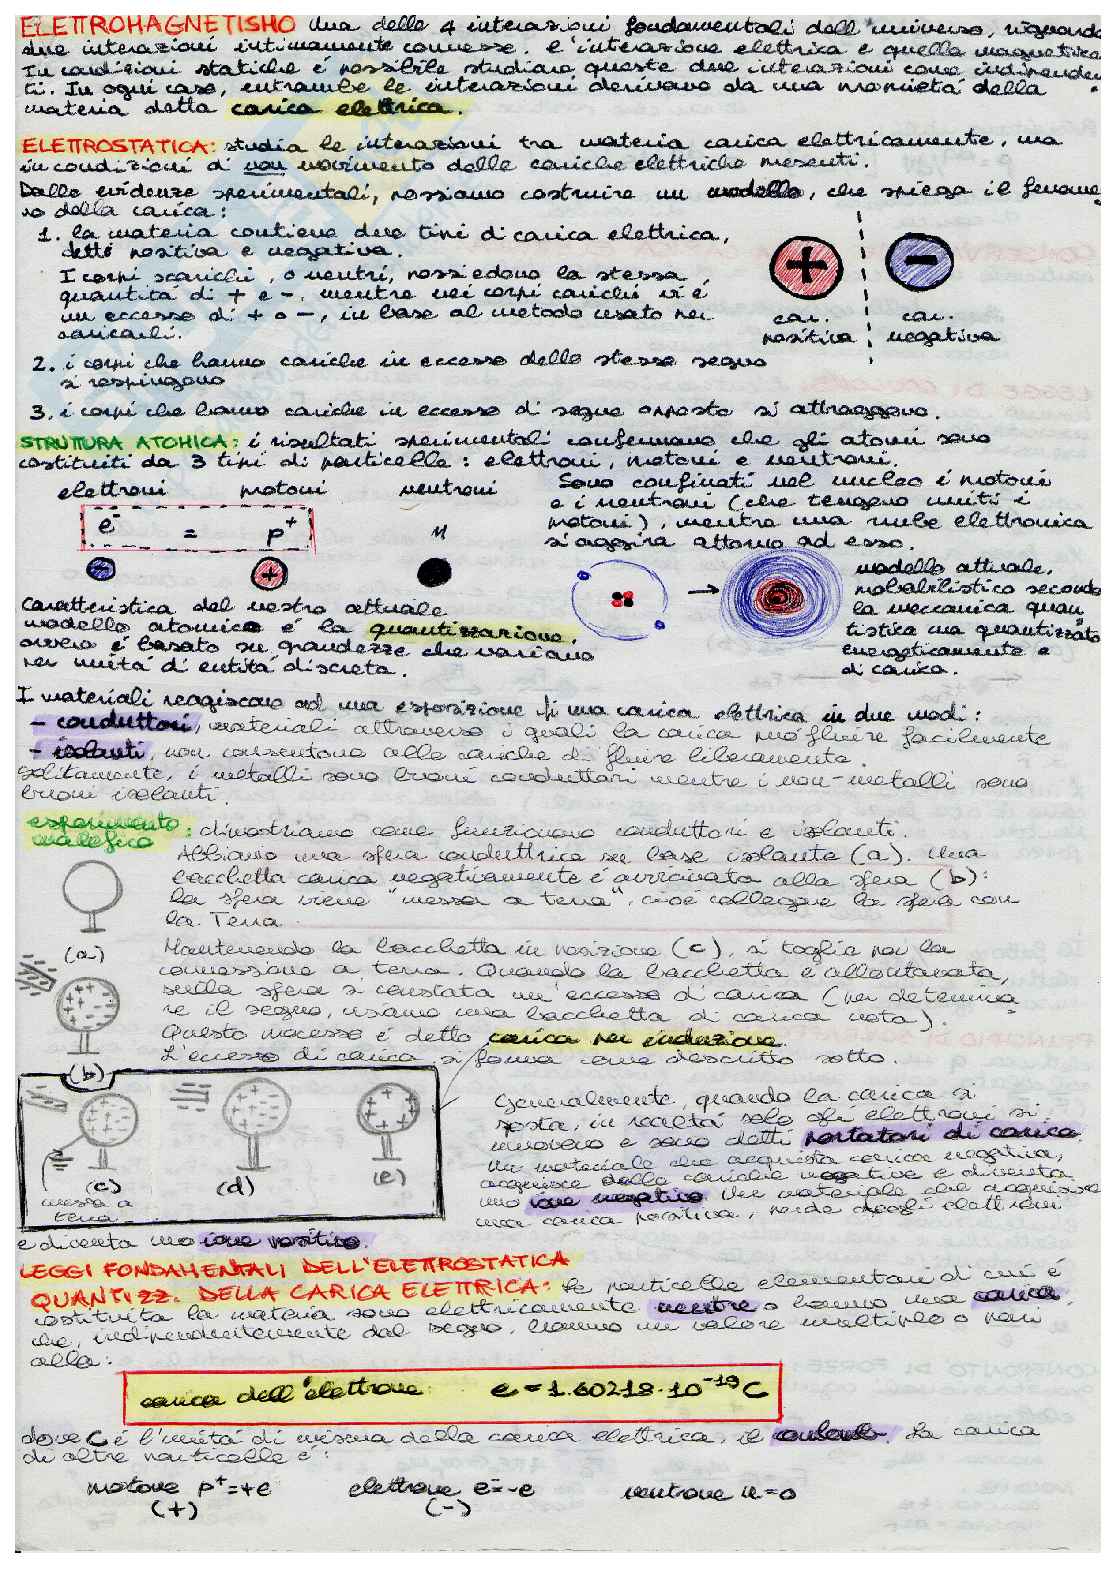 ELETTROMAGNETISMO Una delle 4 interazioni fondamentali dell'universo, riguarda
due interazioni intimamente connesse: l'interazione elettrica e quella magnetica.
In condizioni statiche è possibile studiare queste due interazioni come indipenden
ti. In ogni caso, entrambe le interazioni derivano da una proprietà della
materia detta carica elettrica.
ELETTROSTATICA: studia le interazioni tra materia carica elettricamente, ma
in condizioni di non movimento delle cariche elettriche presenti.
Dalle evidenze sperimentali, possiamo costruire un modello, che spiega il fenome
no della carica:
1. la materia contiene due tipi di carica elettrica,
detti positiva e negativa.
I corpi scarichi, o neutri, possiedono la stessa
quantità di + e -, mentre nei corpi carichi vi è
un eccesso di + o -, in base al metodo usato per
caricarli.
+
-
car.
positiva
car.
negativa
2. i corpi che hanno cariche in eccesso dello stesso segno
si respingono
3. i corpi che hanno cariche in eccesso di segno opposto si attraggono.
STRUTTURA ATOMICA: i risultati sperimentali confermano che gli atomi sono
costituiti da 3 tipi di particelle: elettroni, protoni e neutroni.
elettroni protoni neutroni
e⁻ = p⁺ n
Sono confinati nel nucleo i protoni
e i neutroni (che tengono uniti i
protoni), mentre una nube elettronica
si aggira attorno ad esso.
modello attuale,
probabilistico secondo
la meccanica quan
tistica ma quantizzato
energeticamente e
di carica.
Caratteristica del nostro attuale
modello atomico è la quantizzazione,
ovvero è basato su grandezze che variano
per unità di entità discreta.
I materiali reagiscono ad una esposizione di una carica elettrica in due modi:
- conduttori, materiali attraverso i quali la carica può fluire facilmente
- isolanti, non consentono alle cariche di fluire liberamente.
Solitamente, i metalli sono buoni conduttori mentre i non-metalli sono
buoni isolanti.
esperimento
: dimostriamo come funzionano conduttori e isolanti.
Abbiamo una sfera conduttrice su base isolante (a). Una
bacchetta carica negativamente è avvicinata alla sfera (b):
la sfera viene "messa a terra", cioè collegare la sfera con
la Terra.
(a)
Mantenendo la bacchetta in posizione (c), si toglie poi la
connessione a terra. Quando la bacchetta è allontanata,
sulla sfera si constata un'eccesso di carica (per determina
re il segno, usiamo una bacchetta di carica nota).
Questo processo è detto carica per induzione.
L'eccesso di carica si forma come descritto sotto.
(b)
(c)
messa a
terra
(d)
(e)
Generalmente, quando la carica si
sposta, in realtà solo gli elettroni si
muovono e sono detti portatori di carica.
Un materiale che acquista carica negativa,
acquisce delle cariche negative e diventa
uno ione negativo. Un materiale che acquisisce
una carica positiva, perde degli elettroni
e diventa uno ione positivo.
LEGGI FONDAMENTALI DELL'ELETTROSTATICA
QUANTIZZ. DELLA CARICA ELETTRICA: Le particelle elementari di cui è
costituita la materia sono elettricamente neutre o hanno una carica,
che, indipendentemente dal segno, hanno un valore multiplo o pari
alla:
carica dell'elettrone e = 1.60218·10⁻¹⁹ C
dove C è l'unità di misura della carica elettrica, il coulomb. La carica
di altre particelle è:
protone p⁺=+e elettrone e⁻=-e neutrone n=0
(+) (-)